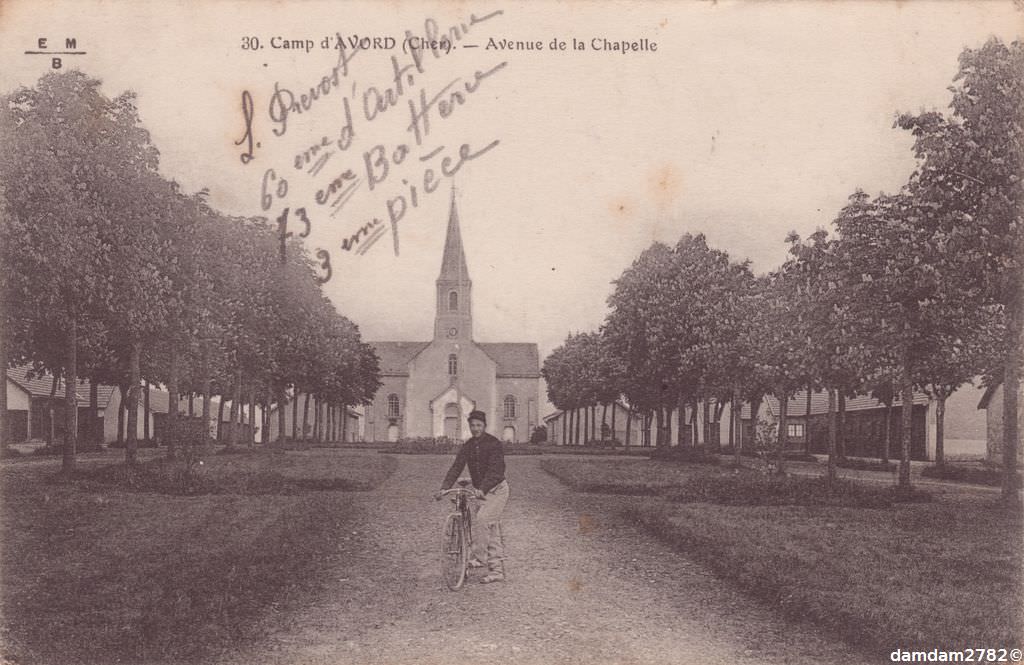 E M
B
30. Camp d'AVORD (Cher). — Avenue de la Chapelle
L. Prevort
60 eme d'Artillerie
73 eme Batterie
3 eme pièce
damdam2782©